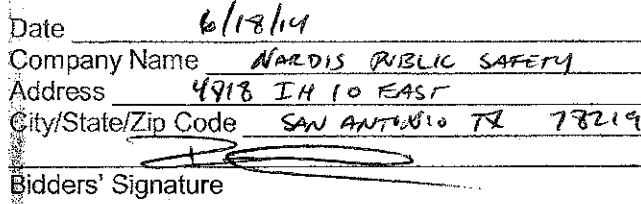 Date 6/18/14
Company Name NARDIS PUBLIC SAFETY
Address 4918 IH 10 EAST
City/State/Zip Code SAN ANTONIO TX 78219
Bidders' Signature